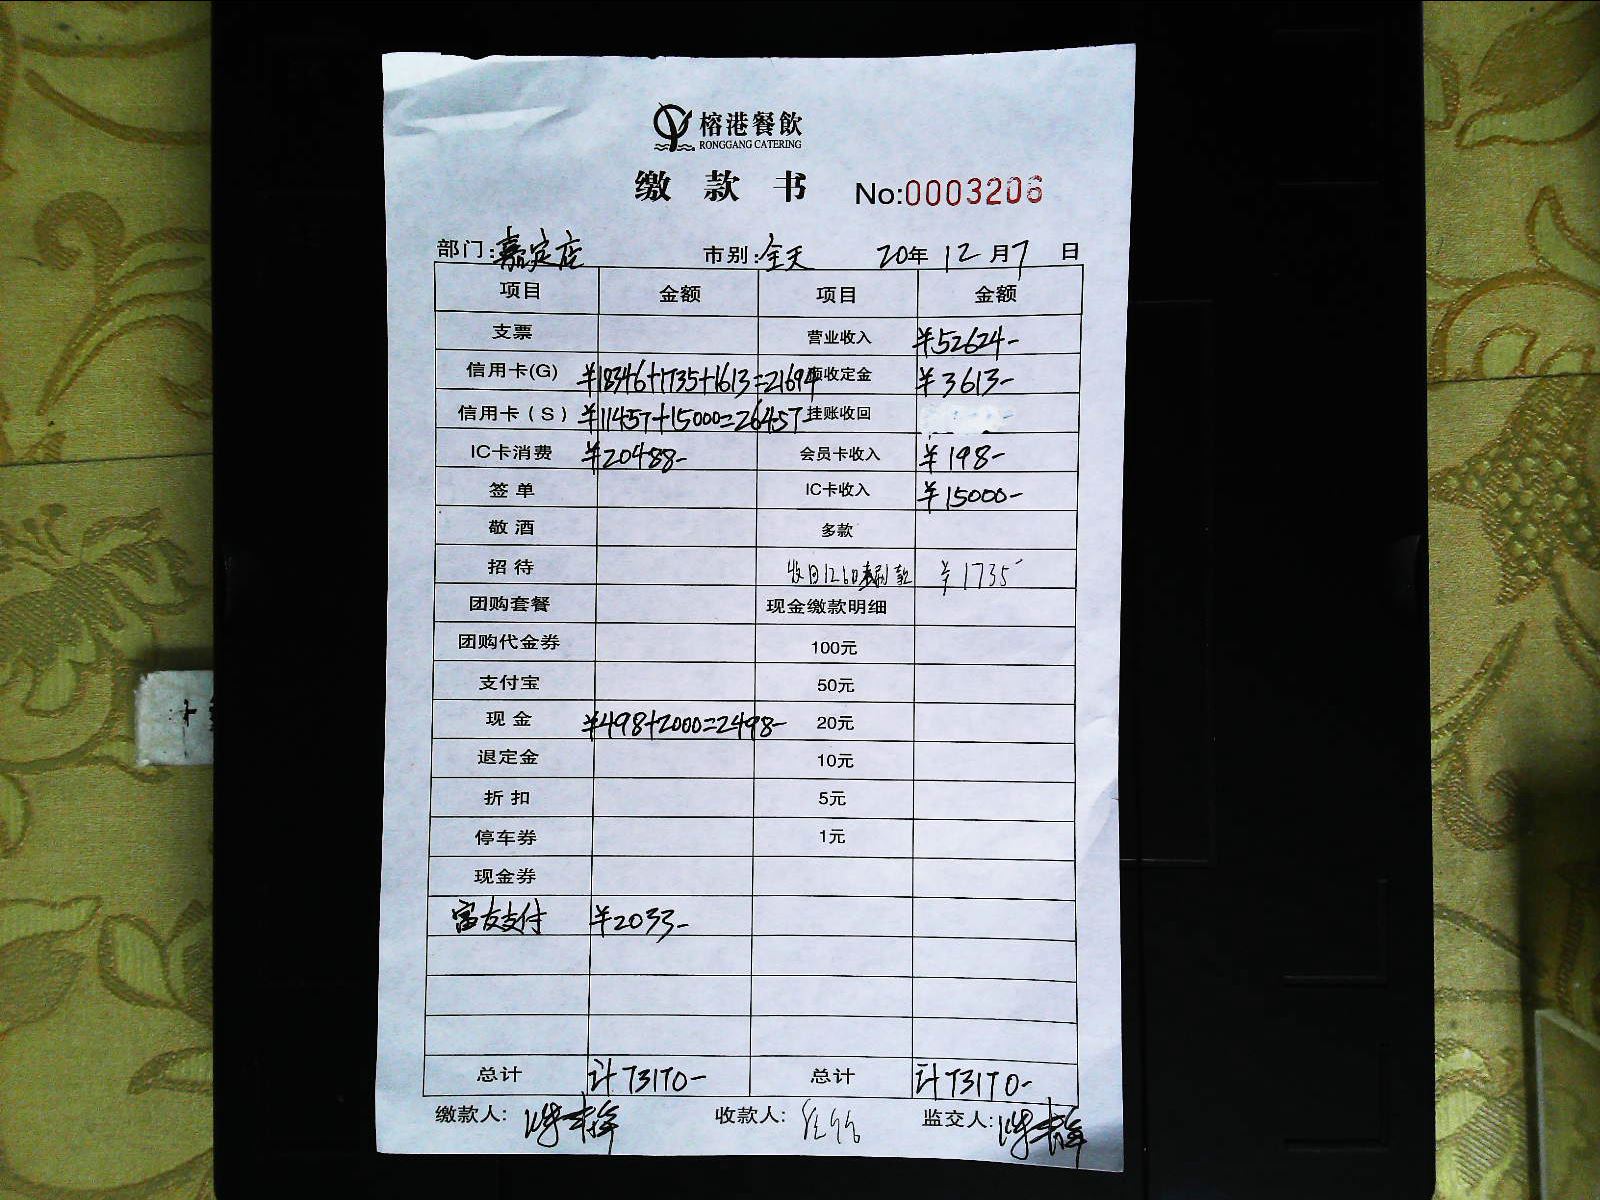 榕港餐飲
RONGGANG CATERING
缴款书 No:0003206
部门:嘉定店 市别:全天 20年12月7日
项目 金额 项目 金额
支票 营业收入 ¥52624-
信用卡(G) ¥18346+1735+1613=21694 收定金 ¥3613-
信用卡(S) ¥11457+15000=26457- 挂账收回
IC卡消费 ¥20488- 会员卡收入 ¥198-
签单 IC卡收入 ¥15000-
敬酒 多款
招待 收回12.6日未刷款 ¥1735
团购套餐 现金缴款明细
团购代金券 100元
支付宝 50元
现金 ¥498+2000=2498- 20元
退定金 10元
折扣 5元
停车券 1元
现金券
富友支付 ¥2033-
总计 计73170- 总计 计73170-
缴款人: 收款人: 监交人: